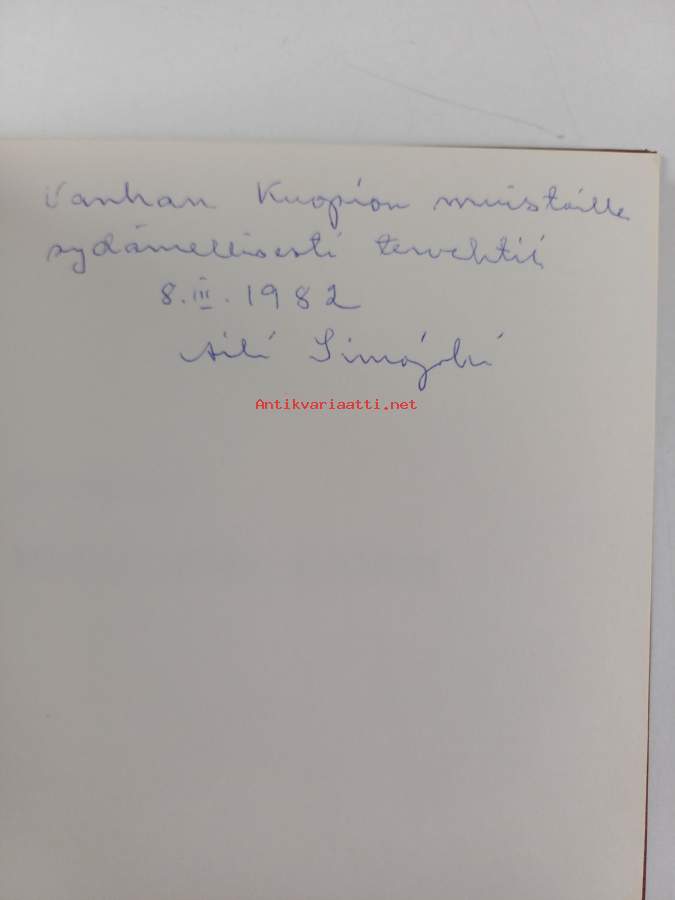 Vanhan Kuopion muistoille
sydämellisesti tervehtii
8.III.1982
Aili Simojoki
Antikvariaatti.net